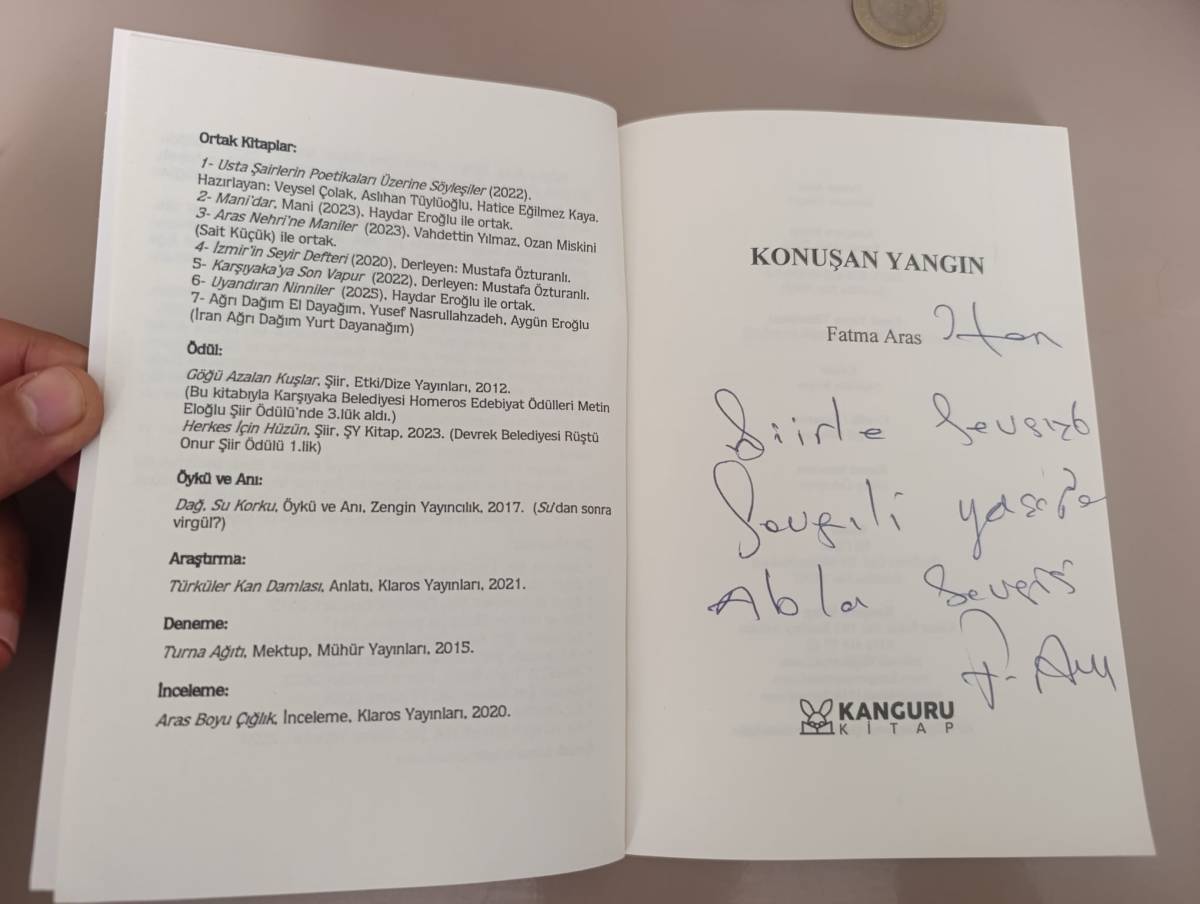 Ortak Kitaplar:
1- Usta Şairlerin Poetikaları Üzerine Söyleşiler (2022),
Hazırlayan: Veysel Çolak, Aslıhan Tüylüoğlu, Hatice Eğilmez Kaya.
2- Mani'dar, Mani (2023), Haydar Eroğlu ile ortak.
3- Aras Nehri'ne Maniler (2023), Vahdettin Yılmaz, Ozan Miskini
(Sait Küçük) ile ortak.
4- İzmir'in Seyir Defteri (2020), Derleyen: Mustafa Özturanlı.
5- Karşıyaka'ya Son Vapur (2022), Derleyen: Mustafa Özturanlı.
6- Uyandıran Ninniler (2025), Haydar Eroğlu ile ortak.
7- Ağrı Dağım El Dayağım, Yusef Nasrullahzadeh, Aygün Eroğlu
(İran Ağrı Dağım Yurt Dayanağım)
Ödül:
Göğü Azalan Kuşlar, Şiir, Etki/Dize Yayınları, 2012.
(Bu kitabıyla Karşıyaka Belediyesi Homeros Edebiyat Ödülleri Metin
Eloğlu Şiir Ödülü'nde 3.lük aldı.)
Herkes İçin Hüzün, Şiir, ŞY Kitap, 2023. (Devrek Belediyesi Rüştü
Onur Şiir Ödülü 1.lik)
Öykü ve Anı:
Dağ, Su Korku, Öykü ve Anı, Zengin Yayıncılık, 2017. (Su'dan sonra
virgül?)
Araştırma:
Türküler Kan Damlası, Anlatı, Klaros Yayınları, 2021.
Deneme:
Turna Ağıtı, Mektup, Mühür Yayınları, 2015.
İnceleme:
Aras Boyu Çığlık, İnceleme, Klaros Yayınları, 2020.
KONUŞAN YANGIN
Fatma Aras
Şiirle
Sevgili
Abla
KANGURU
KİTAP